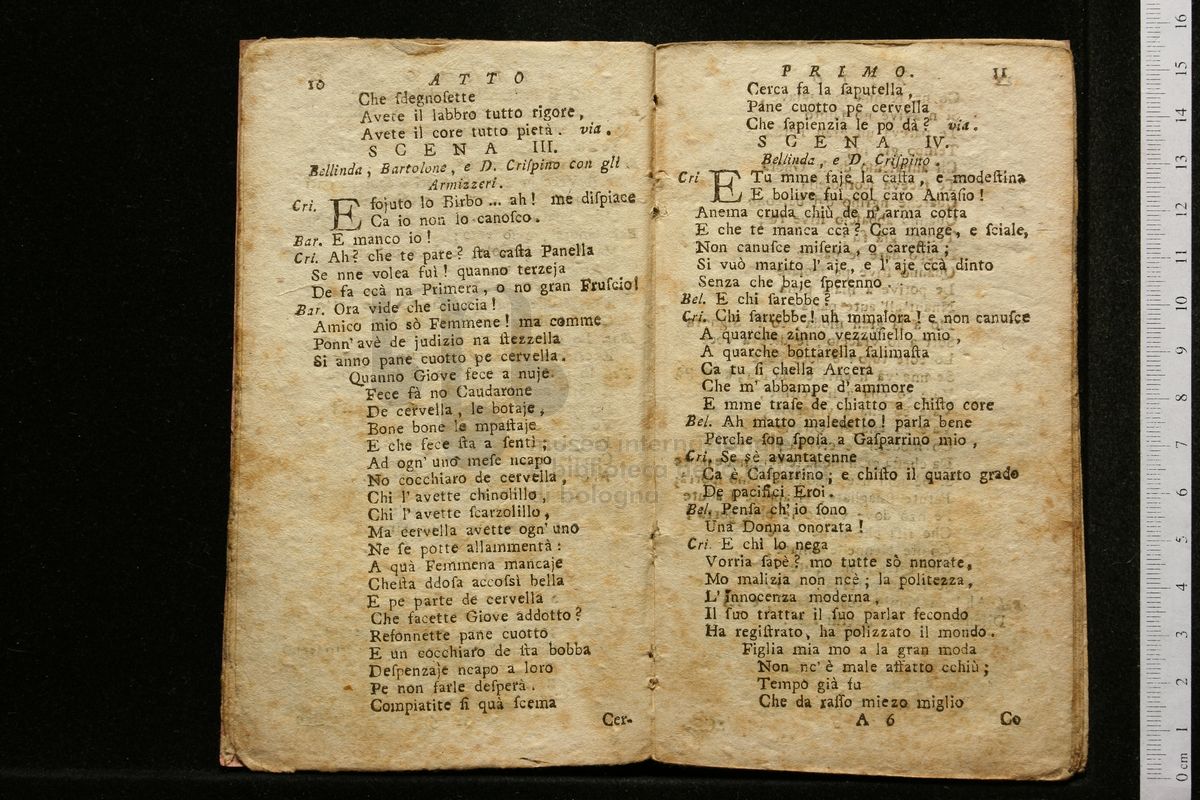 10 ATTO
Che ſdegnoſette
Avete il labbro tutto rigore,
Avete il core tutto pietà. via.
SCENA III.
Bellinda, Bartolone, e D. Criſpino con gli
Armizzeri.
Cri. E fojuto lo Birbo ... ah! me diſpiace
Ca io non lo canoſco.
Bar. E manco io!
Cri. Ah? che te pare? ſta caſta Panella
Se nne volea fuì! quanno terzeja
De fa ccà na Primera, o no gran Fruſcio!
Bar. Ora vide che ciuccia!
Amico mio sò Femmene! ma comme
Ponn' avè de judizio na ſtezzella
Si anno pane cuotto pe cervella.
Quanno Giove fece a nuje
Fece fà no Caudarone
De cervella, le botaje,
Bone bone le mpaſtaje
E che fece ſta a ſentì;
Ad ogn' uno meſe ncapo
No cocchiaro de cervella,
Chi l' avette chinolillo,
Chi l' avette ſcarzolillo,
Ma cervella avette ogn' uno
Ne ſe potte allammentà:
A quà Femmena mancaje
Cheſta ddoſa accoſsì bella
E pe parte de cervella
Che facette Giove addotto?
Refonnette pane cuotto
E un cocchiaro de ſta bobba
Deſpenzaje ncapo a loro
Pe non farle deſperà.
Compiatite ſi quà ſcema
Cer-
PRIMO. 11
Cerca fa la ſaputella,
Pane cuotto pe cervella
Che ſapienzia le po dà? via.
SCENA IV.
Bellinda, e D. Criſpino.
Cri E Tu mme faje la caſta, e modeſtina
E bolive fuì col caro Amaſio!
Anema cruda chiù de n' arma cotta
E che te manca ccà? Cca mange, e ſciale,
Non canuſce miſeria, o careſtia;
Si vuò marito l' aje, e l' aje ccà dinto
Senza che baje ſperenno.
Bel. E chi ſarebbe?
Cri. Chi ſarrebbe! uh mmalora! e non canuſce
A quarche zinno vezzuſiello mio,
A quarche bottarella ſalimaſta
Ca tu ſi chella Arcera
Che m' abbampe d' ammore
E mme traſe de chiatto a chiſto core
Bel. Ah matto maledetto! parla bene
Perche ſon ſpoſa a Gaſparrino mio,
Cri. Se sè avantatenne
Ca è Caſparrino; e chiſto il quarto grado
De pacifici Eroi.
Bel. Penſa ch' io ſono
Una Donna onorata!
Cri. E chi lo nega
Vorria ſapè? mo tutte sò nnorate,
Mo malizia non ncè; la politezza,
L' Innocenza moderna,
Il ſuo trattar il ſuo parlar fecondo
Ha regiſtrato, ha polizzato il mondo.
Figlia mia mo a la gran moda
Non nc' è male affatto cchiù;
Tempo già fu
Che da raſſo miezo miglio
A 6 Co